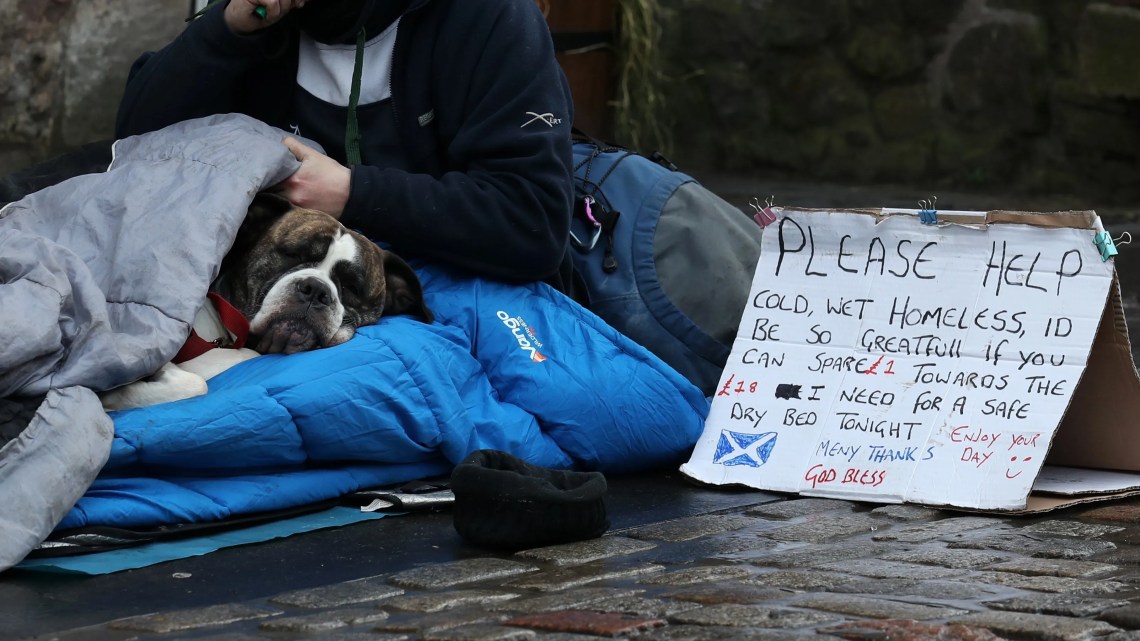 PLEASE HELP
COLD, WET HOMELESS, ID
BE SO GREATFULL IF YOU
CAN SPARE £1 TOWARDS THE
£18 I NEED FOR A SAFE
DRY BED TONIGHT
MENY THANKS
GOD BLESS
ENJOY YOUR
DAY
Vango